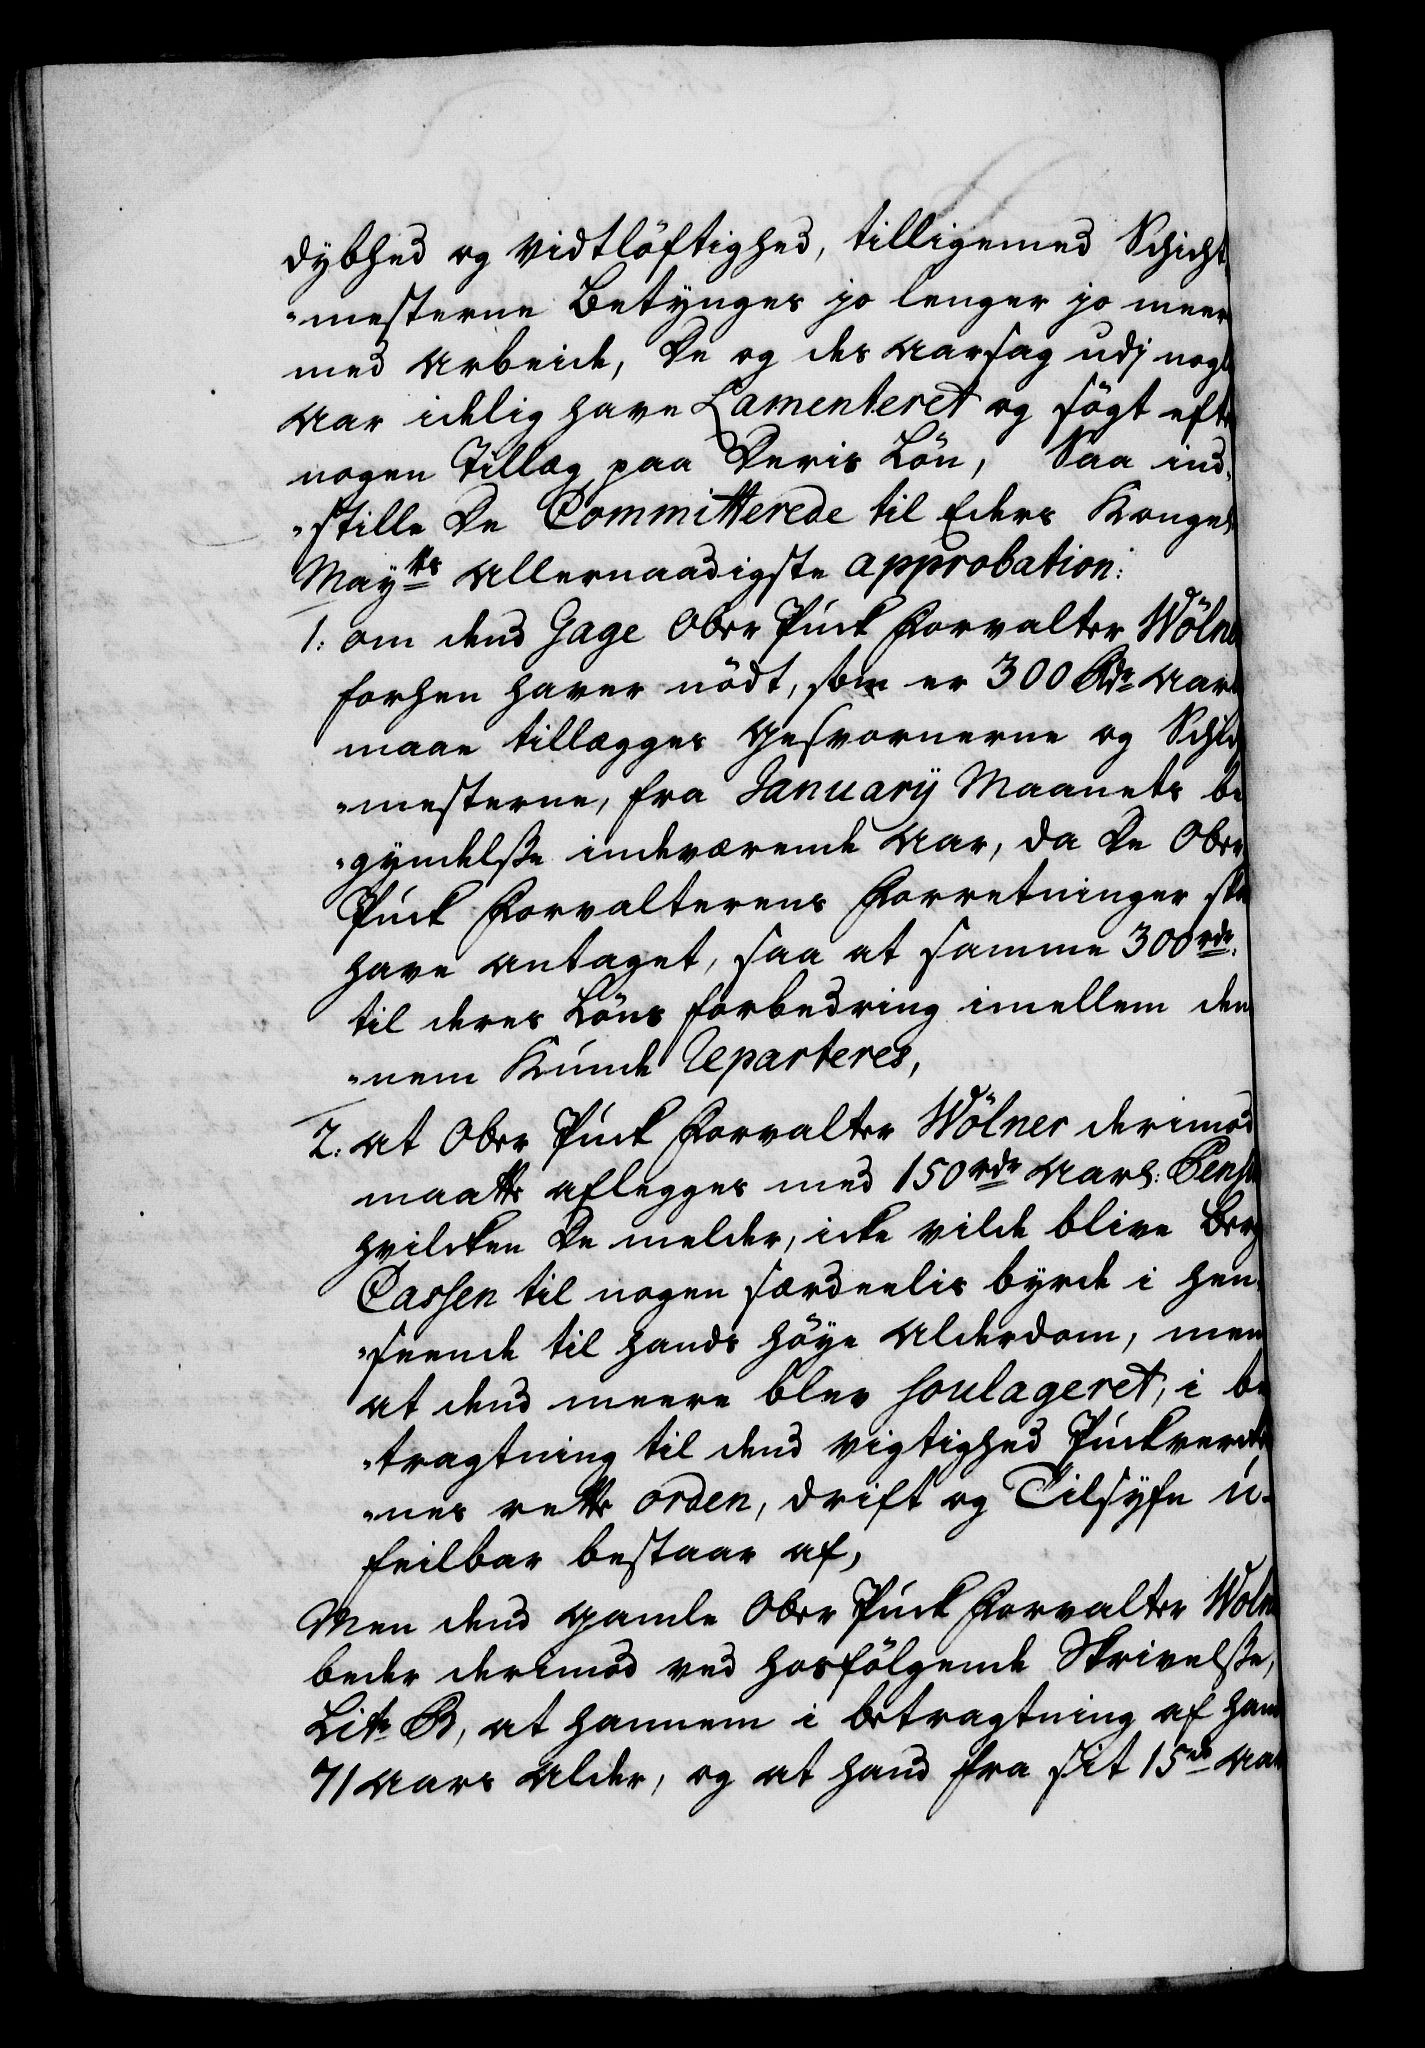 dybhed og vidtlöftighed, tilligemed Schicht
"mesterne Betynges jo lenger jo meer
med Arbeide, De og des Aarsag udj nogle
Aar idelig have Lamenteret og sögt efter
nogen Tillæg paa Deris Lön, Saa ind-
"stille De Committerede til Eders Kongel
Mayts Allernaadigste approbation:
1: om dend Gage Ober Puck Forvalter Wölner
forhen haver nödt, som er 300 Rdr Aarl
maae tillægges Gesvornerne og Schicht
"mesterne, fra January Maanets be
"gyndelsse indeværende Aar, da De Ober
Puck Forvalterens Forretninger skal
have antaget, saa at samme 300 rdr.
til deres Löns forbedring imellem den
"nem Kunde Reparteres,
2: at Ober Puck Forvalter Wölner derimod
maatte aflegges med 150 rdr Aarl: Pension
hvilcken De melder, icke vilde blive Berg
Cassen til nogen særdeelis byrde i hen-
"seende til hands höye Alderdom, men
at dend meere blev soulageret, i be
"tragtning til dend vigtighed Puckvercker
"nes rette orden, drift og Tilsyn u-
feilbar bestaar af,
Men dend gamle Ober Puck Forvalter Wolner
beder derimod ved hosfölgende Skrivelsse,
Litr B, at hannem i betragtning af hans
71 Aars Alder, og at hand fra sit 15de Aar